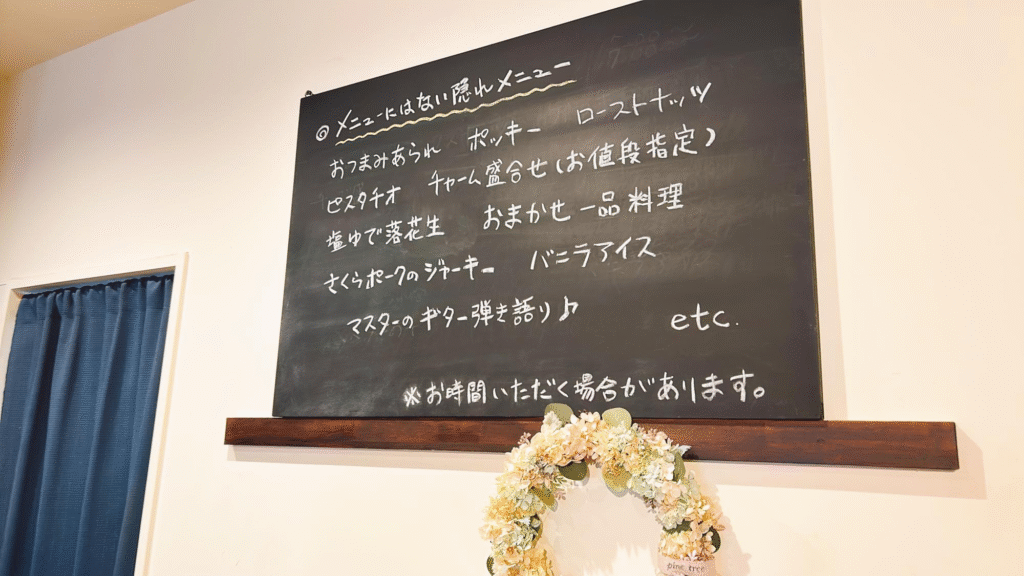 ◎メニューにはない隠れメニュー
おつまみあられ ポッキー ローストナッツ
ピスタチオ チャーム盛合せ(お値段指定)
塩ゆで落花生 おまかせ一品料理
さくらポークのジャーキー バニラアイス
マスターのギター弾き語り♪ etc.
※お時間いただく場合があります。
pine tree